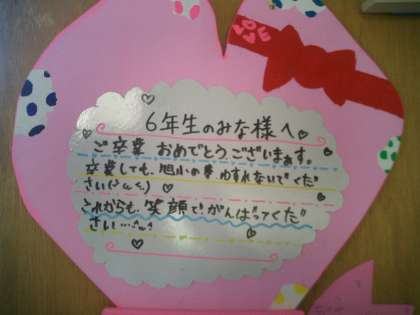 6年生のみな様へ
ご卒業 おめでとうございます。
卒業しても、旭小の事 わすれないでくだ
さい(>ω<.)
これからも、笑顔で!がんばってくだ
さい…